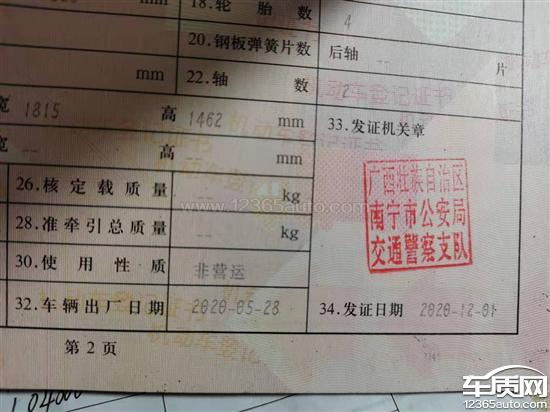 18.轮胎数 4
mm
20.钢板弹簧片数 后轴 片
mm 22.轴数 2
宽 1815 高 1462 mm 33.发证机关章
高 mm
26.核定载质量 -- kg
28.准牵引总质量 -- kg
广西壮族自治区
南宁市公安局
交通警察支队
30.使用性质 非营运
32.车辆出厂日期 2020-05-28 34.发证日期 2020-12-01
第2页
www.12365auto.com
车质网
12365auto.com